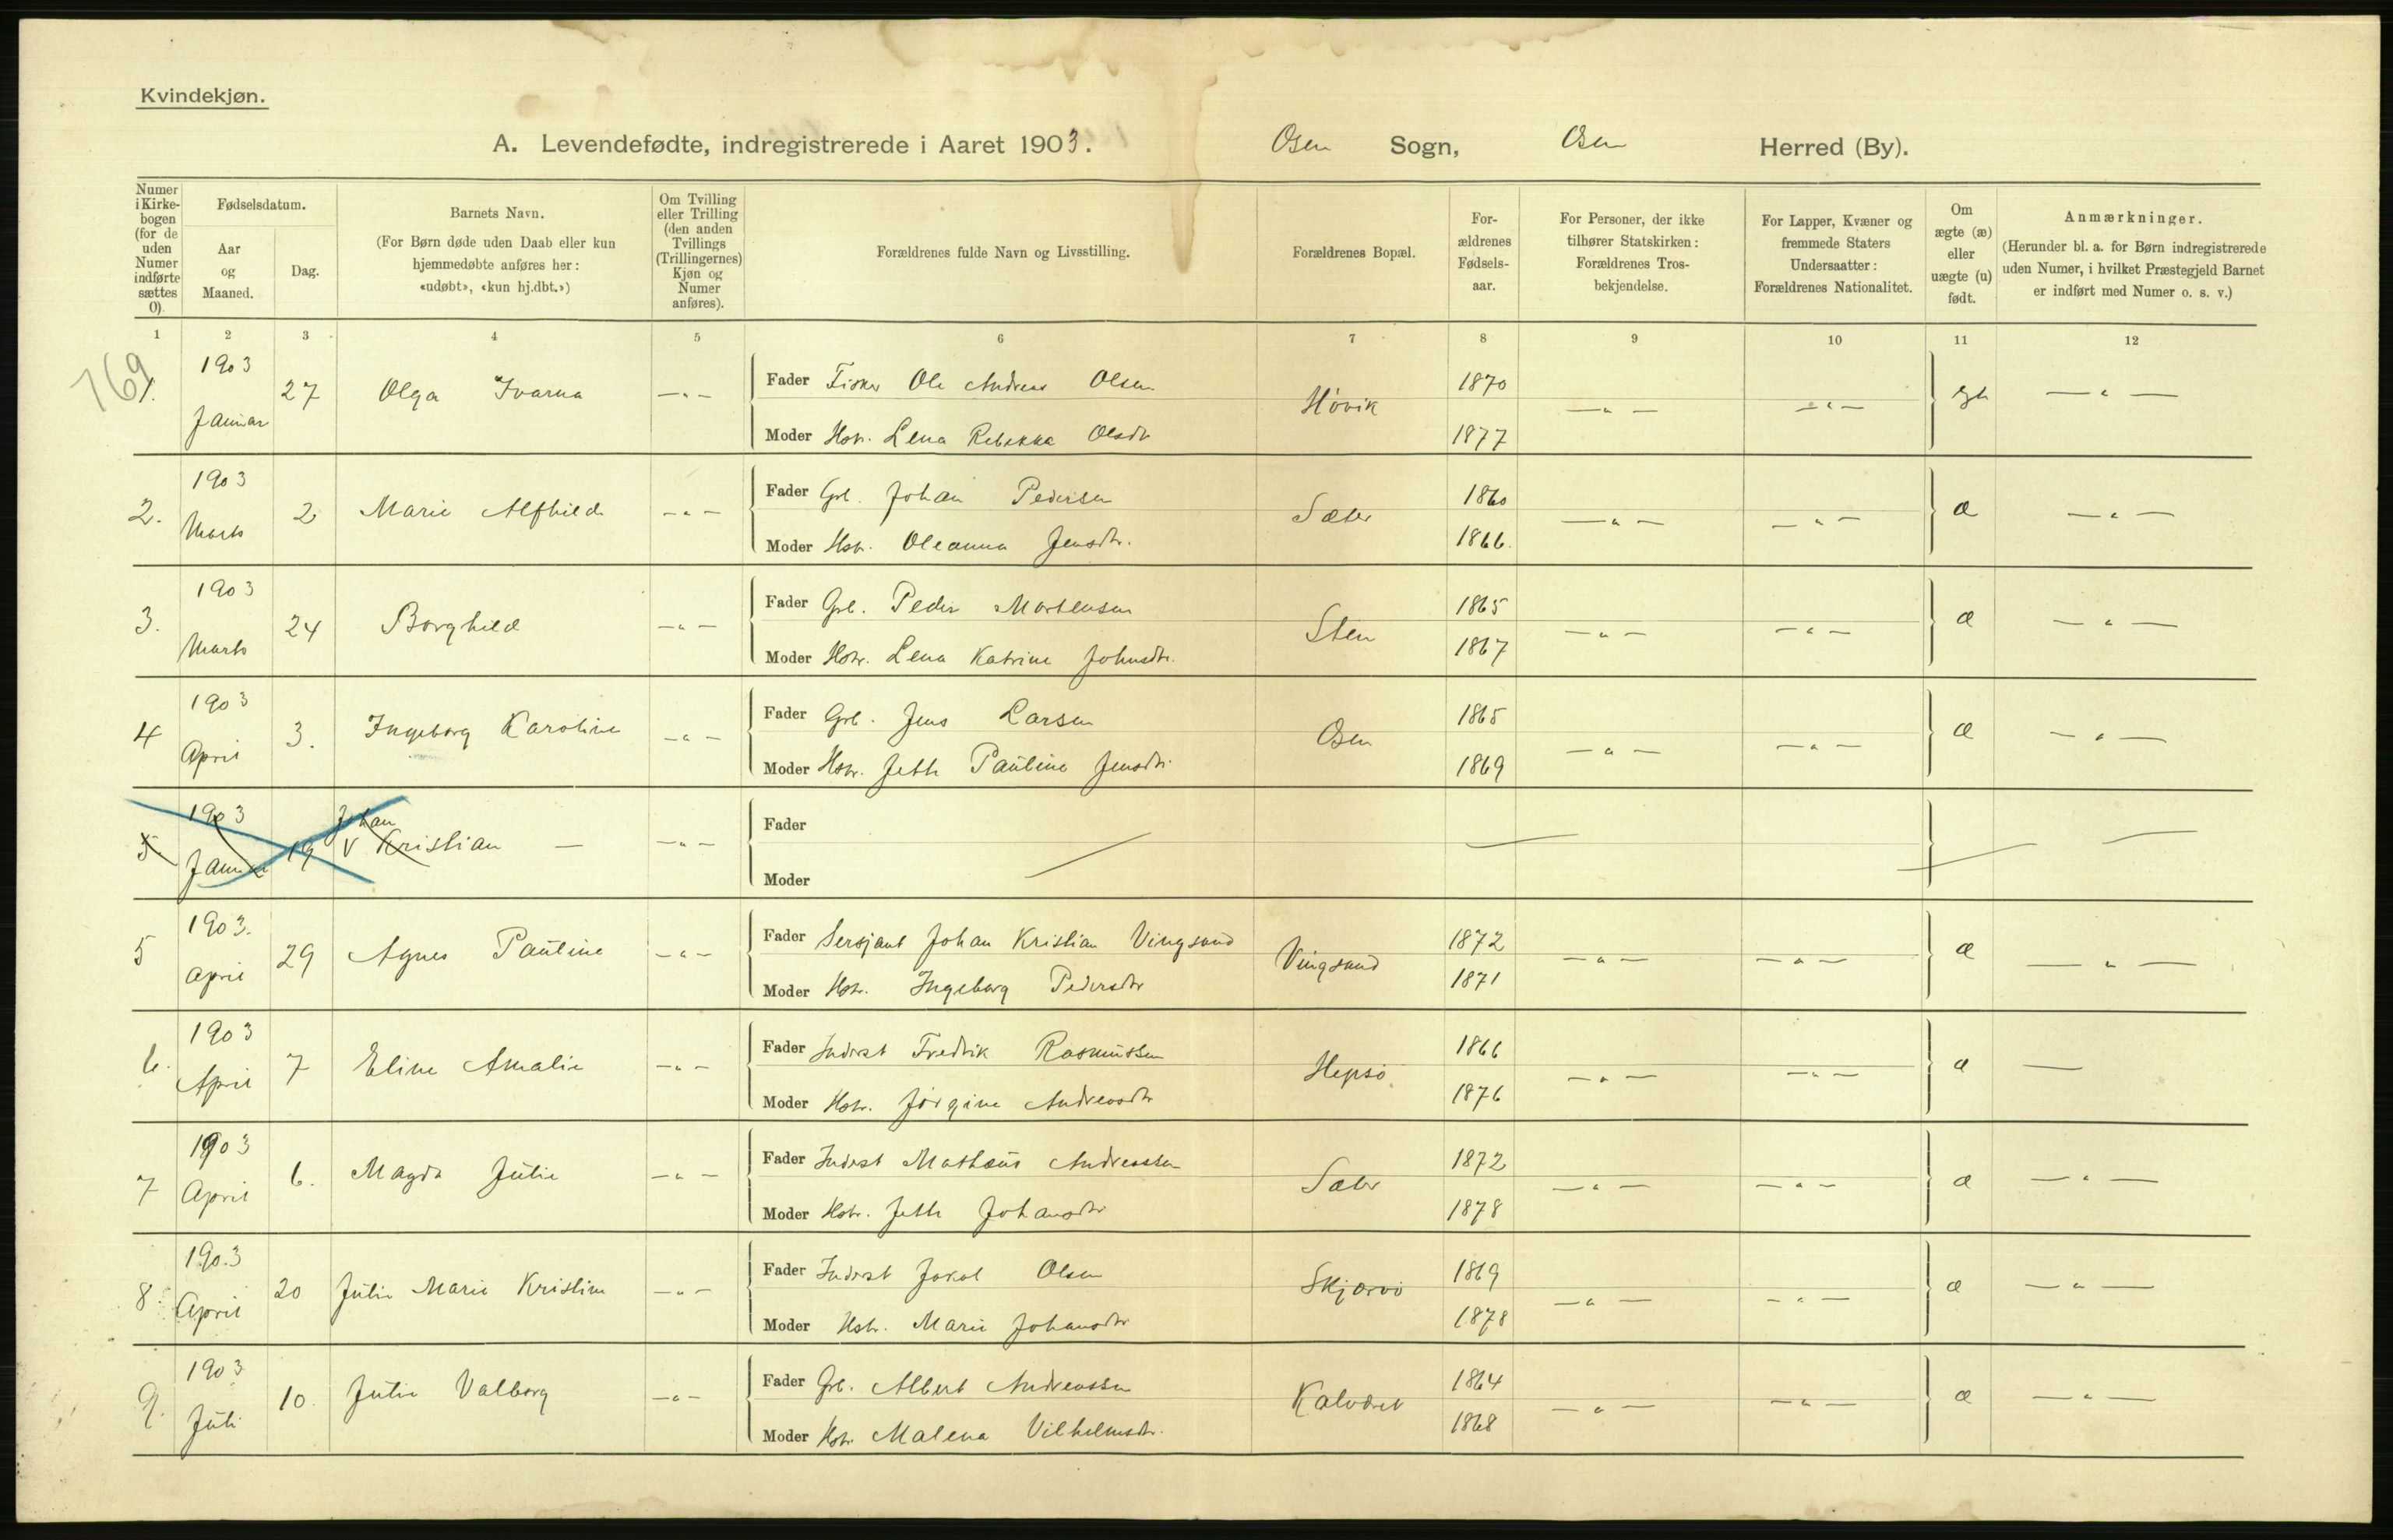 Kvindekjøn.
A. Levendefødte, indregistrerede i Aaret 1903. Osen Sogn, Osen Herred (By).
Numer i Kirkebogen (for de uden Numer indførte sættes 0).
Fødselsdatum.
Aar og Maaned.
Dag.
Barnets Navn.
(For Børn døde uden Daab eller kun hjemmedøbte anføres her: «udøbt», «kun hj.dbt.»)
Om Tvilling eller Trilling (den anden Tvillings (Trillingernes) Kjøn og Numer anføres).
Forældrenes fulde Navn og Livsstilling.
Forældrenes Bopæl.
For-ældrenes Fødsels-aar.
For Personer, der ikke tilhører Statskirken: Forældrenes Tros-bekjendelse.
For Lapper, Kvæner og fremmede Staters Undersaatter: Forældrenes Nationalitet.
Om ægte (æ) eller uægte (u) født.
Anmærkninger.
(Herunder bl. a. for Børn indregistrerede uden Numer, i hvilket Præstegjeld Barnet er indført med Numer o. s. v.)
1 2 3 4 5 6 7 8 9 10 11 12
769
1. 1903 Januar 27 Olga Ivarna —„— Fader Fisker Ole Andreas Olsen Høvik 1870 —„— —„— —„—
Moder Hstr. Lena Rebekka Olsdtr 1877
2. 1903 Marts 2 Marie Alfhild —„— Fader Grb. Johan Pedersen Sæter 1860 —„— —„— æ —„—
Moder Hstr. Oleanna Jensdtr. 1866.
3. 1903 Marts 24 Borghild —„— Fader Grb. Peder Mortensen Sten 1865 —„— —„— æ —„—
Moder Hstr. Lena Katrine Johnsdtr. 1867
4 1903 April 3. Ingeborg Karoline —„— Fader Grb. Jens Larsen Osen 1865 —„— —„— æ —„—
Moder Hstr. Jette Pauline Jensdtr. 1869
5 1903 Januar 19 Johan V Kristian — —„— Fader
Moder
5 1903. April 29 Agnes Pauline —„— Fader Sersjant Johan Kristian Vingsand Vingsand 1872 —„— —„— æ —„—
Moder Hstr. Ingeborg Pedersdtr 1871
6. 1903 April 7 Eline Amalie —„— Fader Inderst Fredrik Rasmussen Hepsø 1866 —„— —„— æ —
Moder Hstr. Jørgine Andreasdtr 1876
7 1903 April 6. Magda Julie —„— Fader Inderst Mathæus Andreassen Sæter 1872 —„— —„— æ —„—
Moder Hstr. Jette Johansdtr 1878
8. 1903 April 20 Julie Marie Kristine —„— Fader Inderst Jakob Olsen Skjærvø 1869 —„— —„— æ —„—
Moder Hstr. Marie Johansdtr 1878
9. 1903 Juli 10. Julie Valborg —„— Fader Grb. Albert Andreassen 1864 —„— —„— æ —„—
Moder Hstr. Malena Vilhelmsdtr. 1868